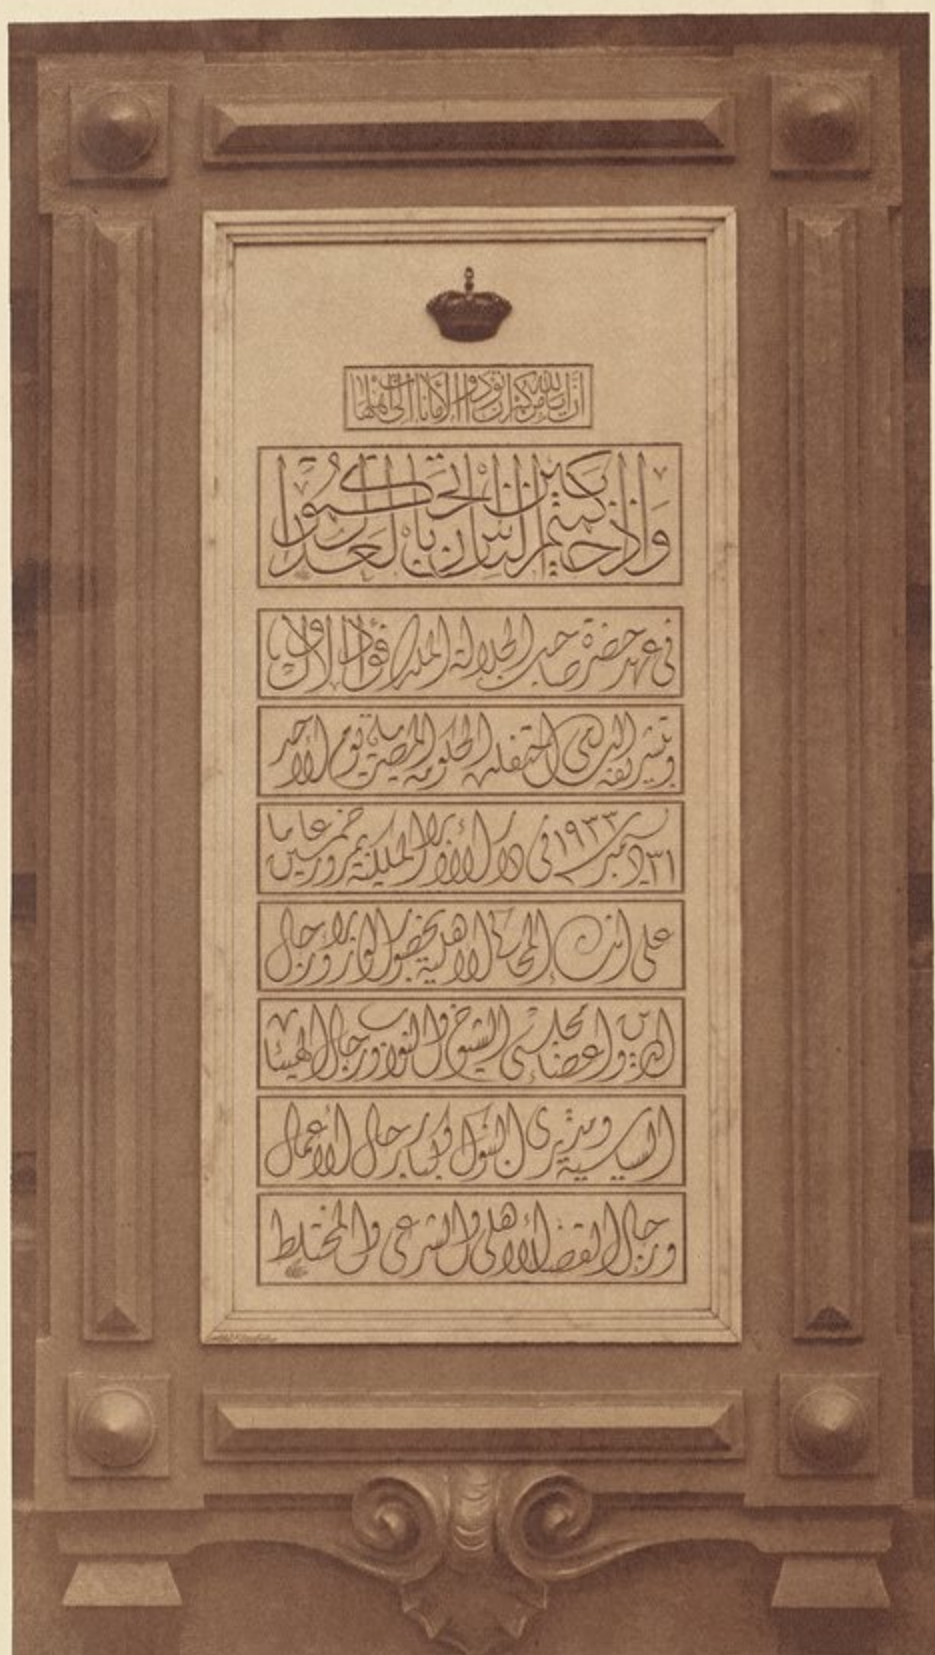 إن الله يأمركم أن تؤدوا الأمانات إلى أهلها
وإذا حكمتم بين الناس أن تحكموا بالعدل
في عهد حضرة صاحب الجلالة الملك فؤاد الأول
وبتشريفه السامي احتفلت الحكومة المصرية يوم الأحد
٣١ ديسمبر سنة ١٩٣٣ في دار الأوبرا الملكية بمرور خمسين عاما
على إنشاء المحاكم الأهلية بحضور الوزراء ورجال
الدين وأعضاء مجلسي الشيوخ والنواب ورجال الهيئات
السياسية ومديري الشؤون وكبار رجال الأعمال
ورجال القضاء الأهلي والشرعي والمختلط